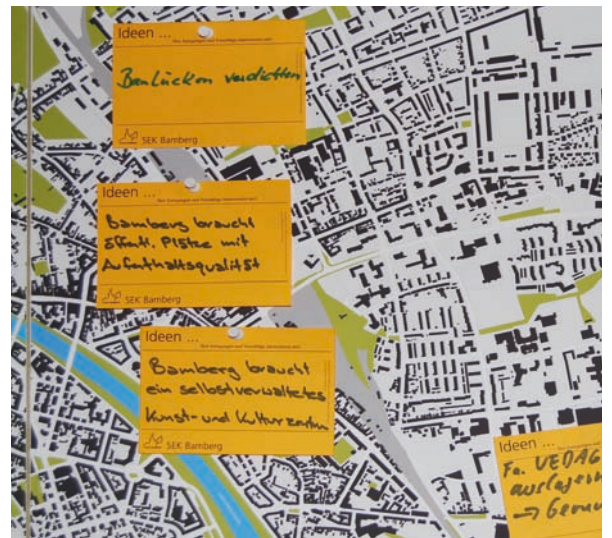 Ideen ...
Baulücken verdichten
SEK Bamberg
Ideen ...
Bamberg braucht
öffentl. Plätze mit
Aufenthaltsqualität
SEK Bamberg
Ideen ...
Bamberg braucht
ein selbstverwaltetes
Kunst- und Kulturzentrum
SEK Bamberg
Ideen ...
Fa. VEDAG
auslagern